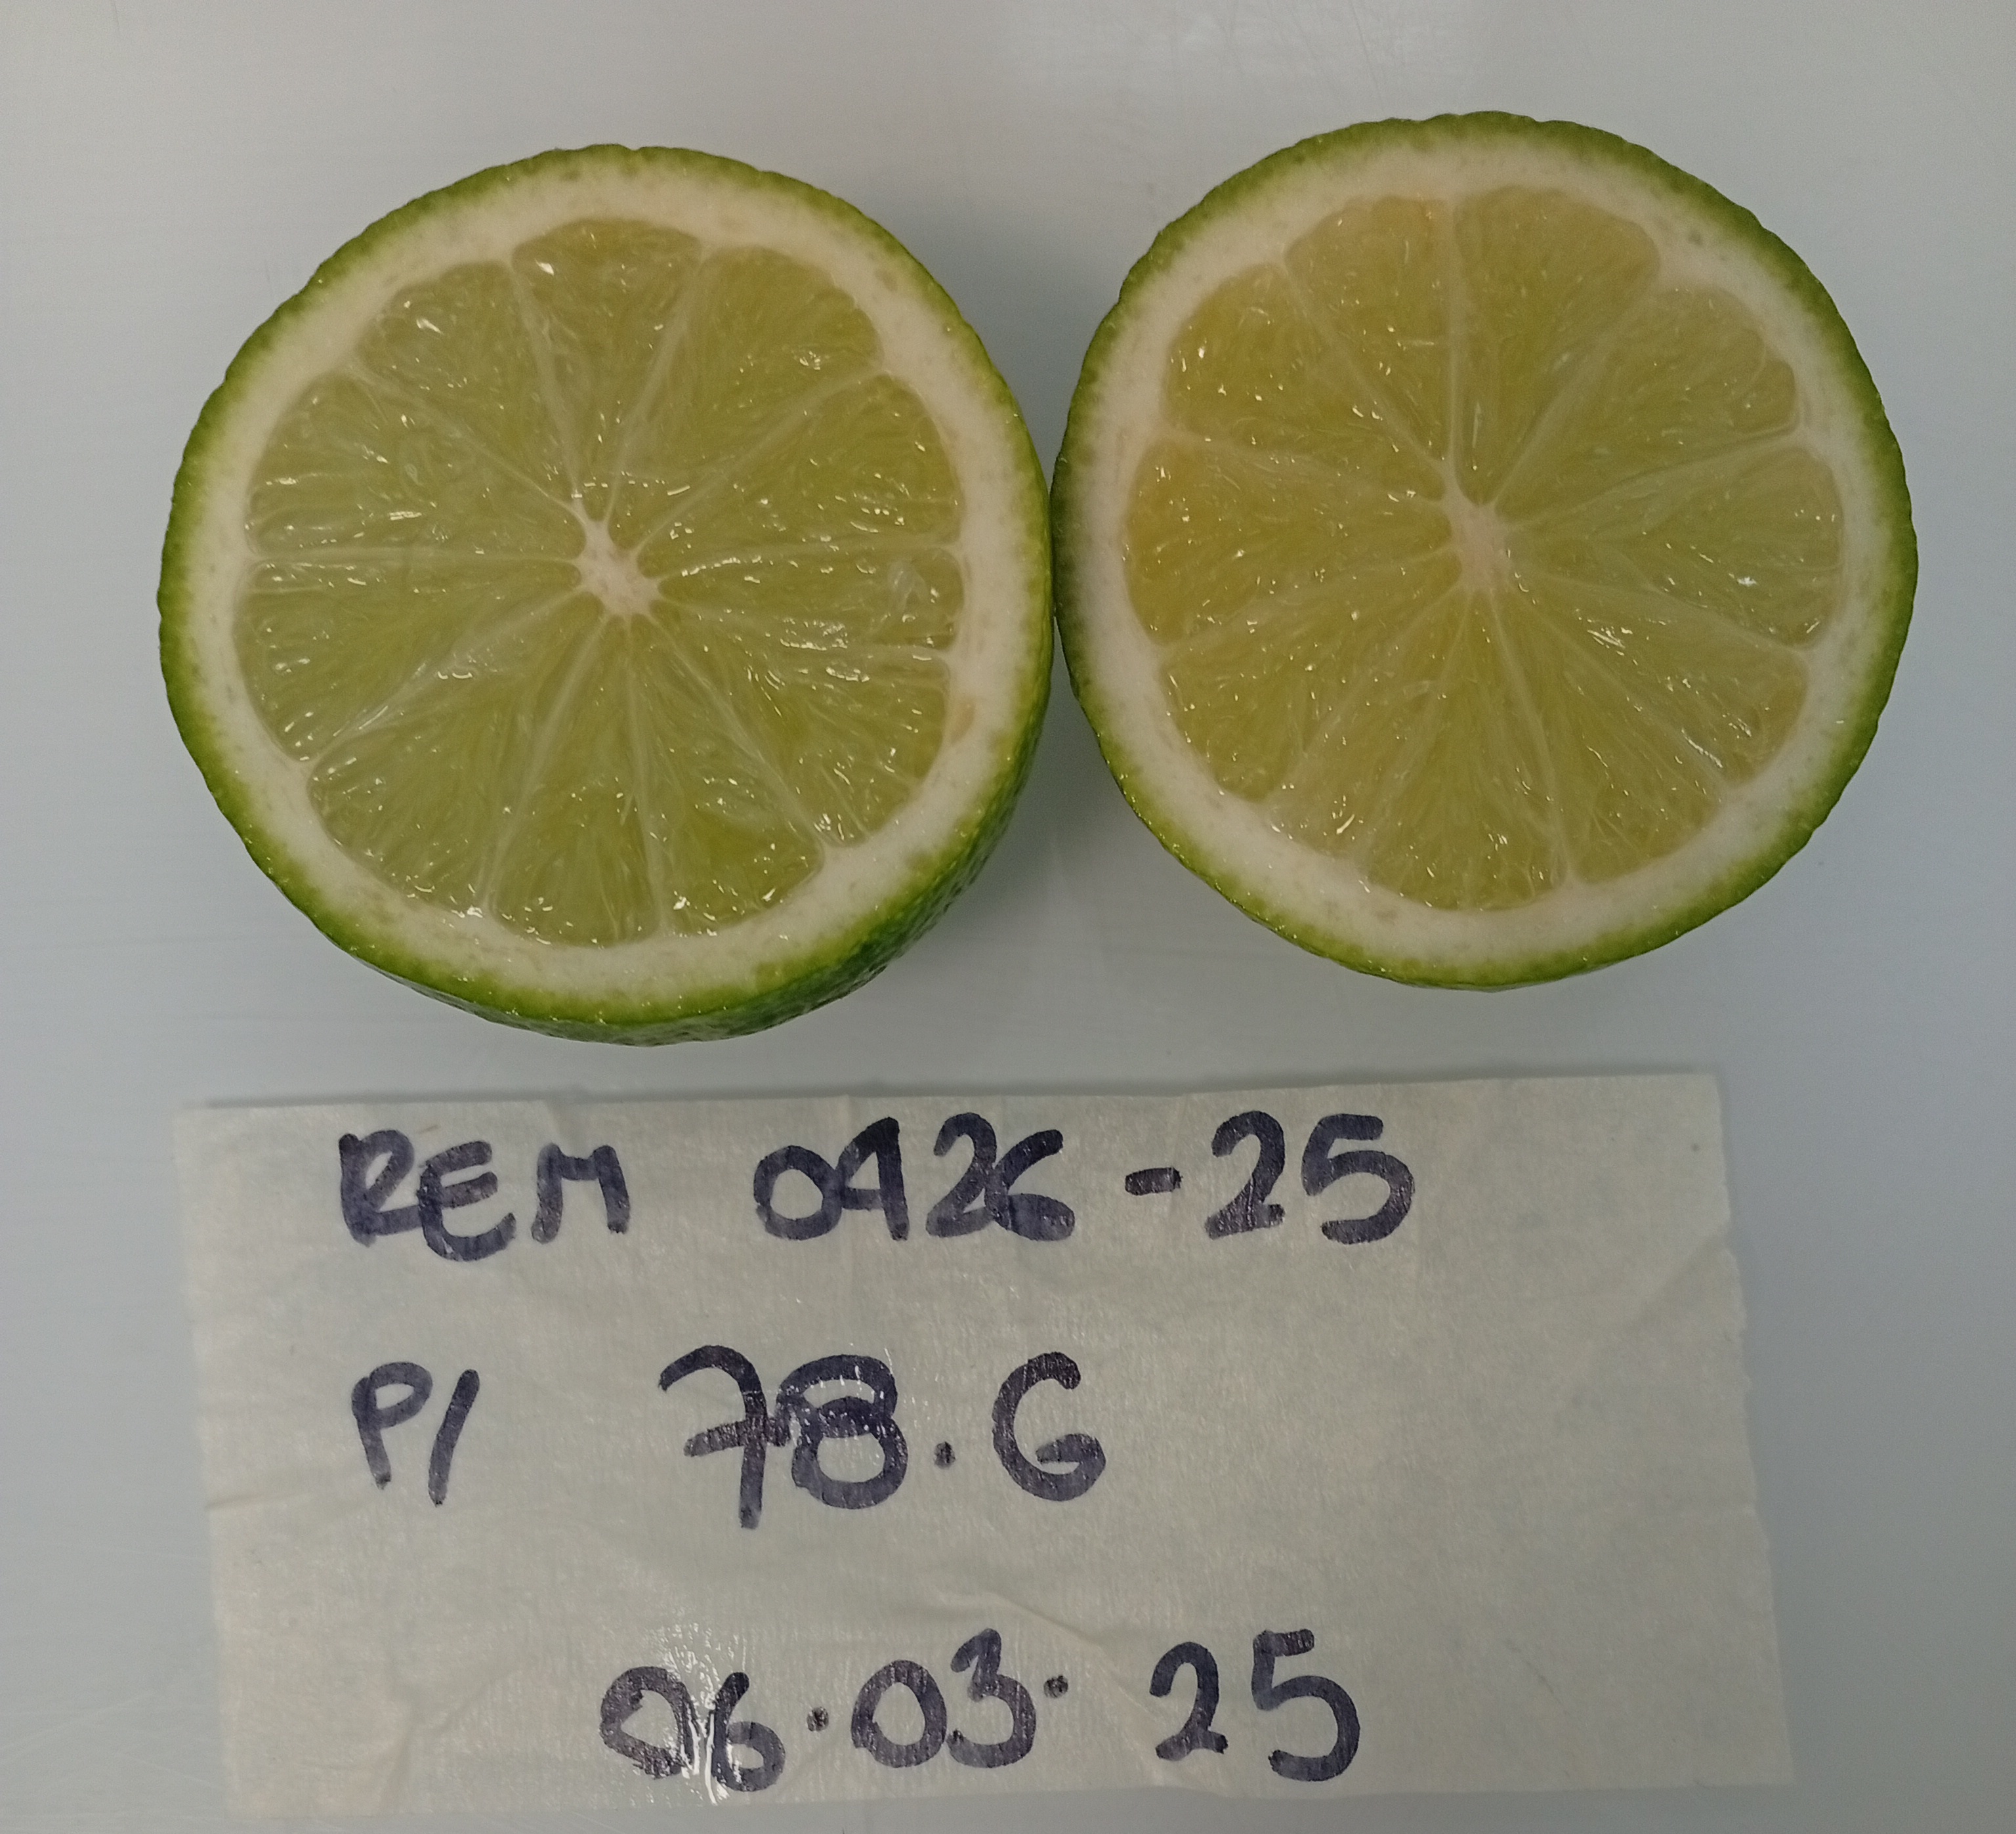 REM 0426-25
P/ 78.6
06.03.25